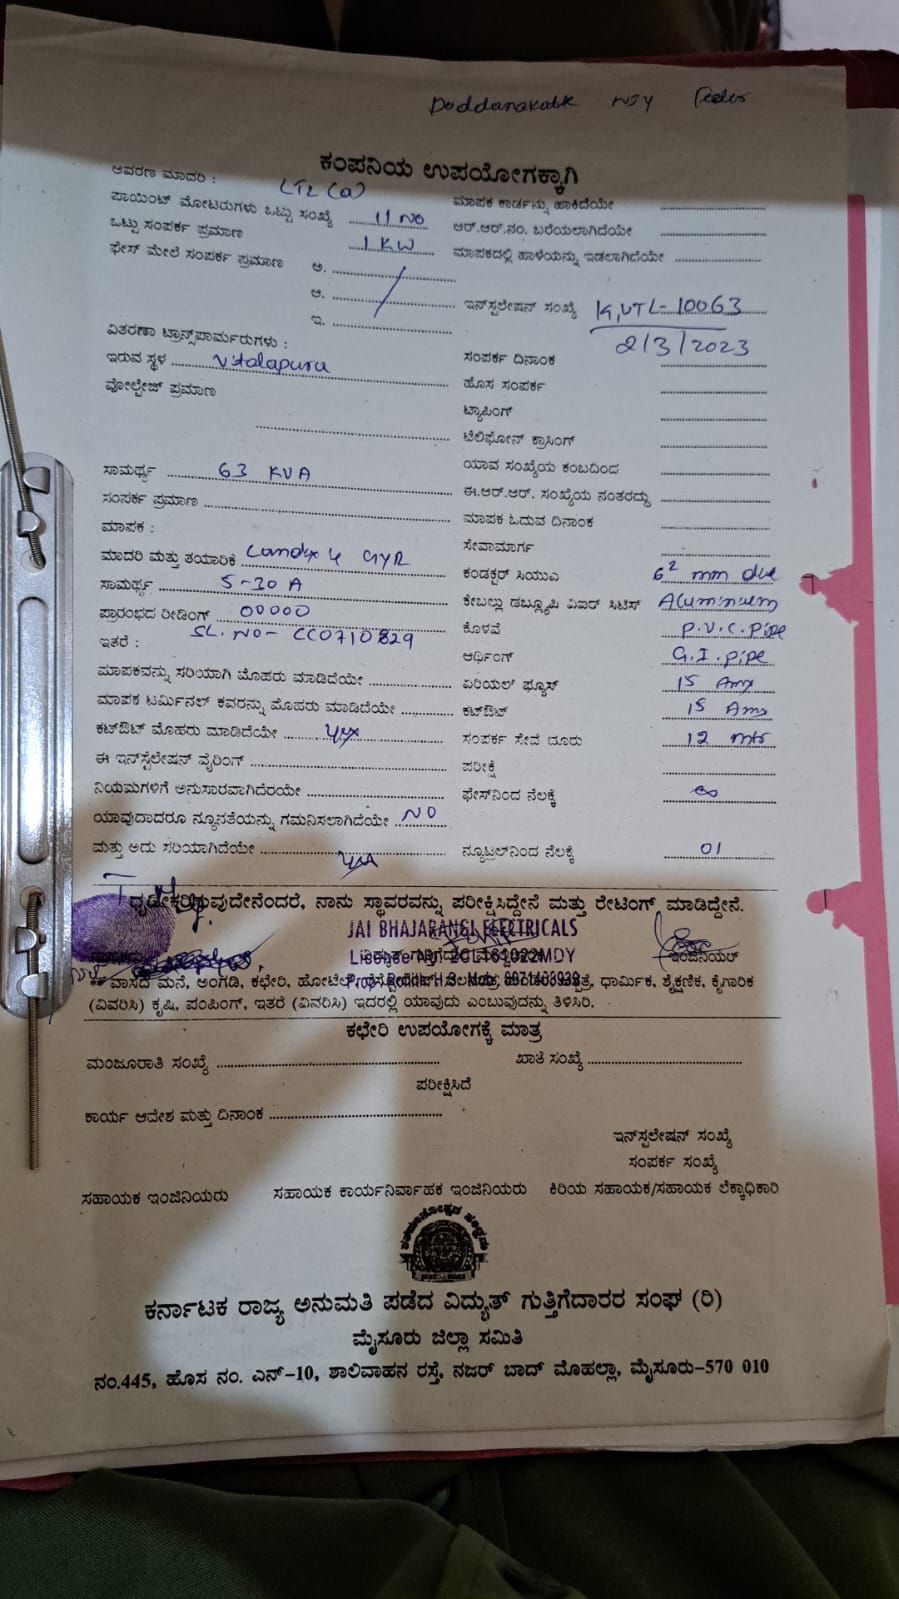 Doddanakatte NJY Feeder
ಕಂಪನಿಯ ಉಪಯೋಗಕ್ಕಾಗಿ
ಆವರಣ ಮಾದರಿ : LT2 (a)
ಮಾಪಕ ಕಾರ್ಡನ್ನು ಹಾಕಿದೆಯೇ
ಪಾಯಿಂಟ್ ಮೋಟರುಗಳು ಒಟ್ಟು ಸಂಖ್ಯೆ 11 NO
ಆರ್.ಆರ್.ನಂ. ಬರೆಯಲಾಗಿದೆಯೇ
ಒಟ್ಟು ಸಂಪರ್ಕ ಪ್ರಮಾಣ 1 KW
ಮಾಪಕದಲ್ಲಿ ಹಾಳೆಯನ್ನು ಇಡಲಾಗಿದೆಯೇ
ಫೇಸ್ ಮೇಲೆ ಸಂಪರ್ಕ ಪ್ರಮಾಣ ಅ.
ಆ.
ಇನ್‌ಸ್ಟಲೇಷನ್ ಸಂಖ್ಯೆ K,VTL-10063
ಇ.
ವಿತರಣಾ ಟ್ರಾನ್ಸ್‌ಫಾರ್ಮರುಗಳು :
ಸಂಪರ್ಕ ದಿನಾಂಕ 2/3/2023
ಇರುವ ಸ್ಥಳ Vitalapura
ಹೊಸ ಸಂಪರ್ಕ
ವೋಲ್ಟೇಜ್ ಪ್ರಮಾಣ
ಟ್ಯಾಪಿಂಗ್
ಟೆಲಿಫೋನ್ ಕ್ರಾಸಿಂಗ್
ಸಾಮರ್ಥ್ಯ 63 KVA
ಯಾವ ಸಂಖ್ಯೆಯ ಕಂಬದಿಂದ
ಸಂಪರ್ಕ ಪ್ರಮಾಣ
ಈ.ಆರ್.ಆರ್. ಸಂಖ್ಯೆಯ ನಂತರದ್ದು
ಮಾಪಕ :
ಮಾಪಕ ಓದುವ ದಿನಾಂಕ
ಮಾದರಿ ಮತ್ತು ತಯಾರಿಕೆ Landx & GYR
ಸೇವಾಮಾರ್ಗ
ಸಾಮರ್ಥ್ಯ 5-30 A
ಕಂಡಕ್ಟರ್ ಸಿಯುಎ 6² mm
ಪ್ರಾರಂಭದ ರೀಡಿಂಗ್ 00000
ಕೇಬಲ್ಲು ಡಬ್ಲ್ಯೂಪಿ ವಿಐರ್ ಸಿಟಿಸ್ Aluminuem
ಇತರೆ : SL. NO- CC0710829
ಕೊಳವೆ P.V.C. Pipe
ಅರ್ಥಿಂಗ್ G.I. Pipe
ಮಾಪಕವನ್ನು ಸರಿಯಾಗಿ ಮೊಹರು ಮಾಡಿದೆಯೇ
ಏರಿಯಲ್ ಫ್ಯೂಸ್ 15 Amp
ಮಾಪಕ ಟರ್ಮಿನಲ್ ಕವರನ್ನು ಮೊಹರು ಮಾಡಿದೆಯೇ
ಕಟ್‌ಔಟ್ 15 Amp
ಕಟ್‌ಔಟ್ ಮೊಹರು ಮಾಡಿದೆಯೇ yes
ಸಂಪರ್ಕ ಸೇವೆ ದೂರು 12 mts
ಈ ಇನ್‌ಸ್ಟಲೇಷನ್ ವೈರಿಂಗ್
ಪರೀಕ್ಷೆ
ನಿಯಮಗಳಿಗೆ ಅನುಸಾರವಾಗಿದೆರಯೇ
ಫೇಸ್‌ನಿಂದ ನೆಲಕ್ಕೆ ∞
ಯಾವುದಾದರೂ ನ್ಯೂನತೆಯನ್ನು ಗಮನಿಸಲಾಗಿದೆಯೇ NO
ಮತ್ತು ಅದು ಸರಿಯಾಗಿದೆಯೇ yes
ನ್ಯೂಟ್ರಲ್‌ನಿಂದ ನೆಲಕ್ಕೆ 01
ಧೃಡೀಕರಿಸುವುದೇನೆಂದರೆ, ನಾನು ಸ್ಥಾವರವನ್ನು ಪರೀಕ್ಷಿಸಿದ್ದೇನೆ ಮತ್ತು ರೇಟಿಂಗ್ ಮಾಡಿದ್ದೇನೆ.
JAI BHAJARANGI ELECTRICALS
Licence No: 2CL161022MDY
ಇಂಜಿನಿಯರ್
ವಾಸದ ಮನೆ, ಅಂಗಡಿ, ಕಛೇರಿ, ಹೋಟೆಲ್, ಧಾರ್ಮಿಕ, ಶೈಕ್ಷಣಿಕ, ಕೈಗಾರಿಕ
(ವಿವರಿಸಿ) ಕೃಷಿ, ಪಂಪಿಂಗ್, ಇತರೆ (ವಿವರಿಸಿ) ಇದರಲ್ಲಿ ಯಾವುದು ಎಂಬುವುದನ್ನು ತಿಳಿಸಿರಿ.
ಕಛೇರಿ ಉಪಯೋಗಕ್ಕೆ ಮಾತ್ರ
ಮಂಜೂರಾತಿ ಸಂಖ್ಯೆ ಖಾತೆ ಸಂಖ್ಯೆ
ಪರೀಕ್ಷಿಸಿದೆ
ಕಾರ್ಯ ಆದೇಶ ಮತ್ತು ದಿನಾಂಕ
ಇನ್‌ಸ್ಪಲೇಷನ್ ಸಂಖ್ಯೆ
ಸಂಪರ್ಕ ಸಂಖ್ಯೆ
ಸಹಾಯಕ ಇಂಜಿನಿಯರು ಸಹಾಯಕ ಕಾರ್ಯನಿರ್ವಾಹಕ ಇಂಜಿನಿಯರು ಕಿರಿಯ ಸಹಾಯಕ/ಸಹಾಯಕ ಲೆಕ್ಕಾಧಿಕಾರಿ
ಕರ್ನಾಟಕ ರಾಜ್ಯ ಅನುಮತಿ ಪಡೆದ ವಿದ್ಯುತ್ ಗುತ್ತಿಗೆದಾರರ ಸಂಘ (ರಿ)
ಮೈಸೂರು ಜಿಲ್ಲಾ ಸಮಿತಿ
ನಂ.445, ಹೊಸ ನಂ. ಎನ್-10, ಶಾಲಿವಾಹನ ರಸ್ತೆ, ನಜರ್ ಬಾದ್ ಮೊಹಲ್ಲಾ, ಮೈಸೂರು-570 010